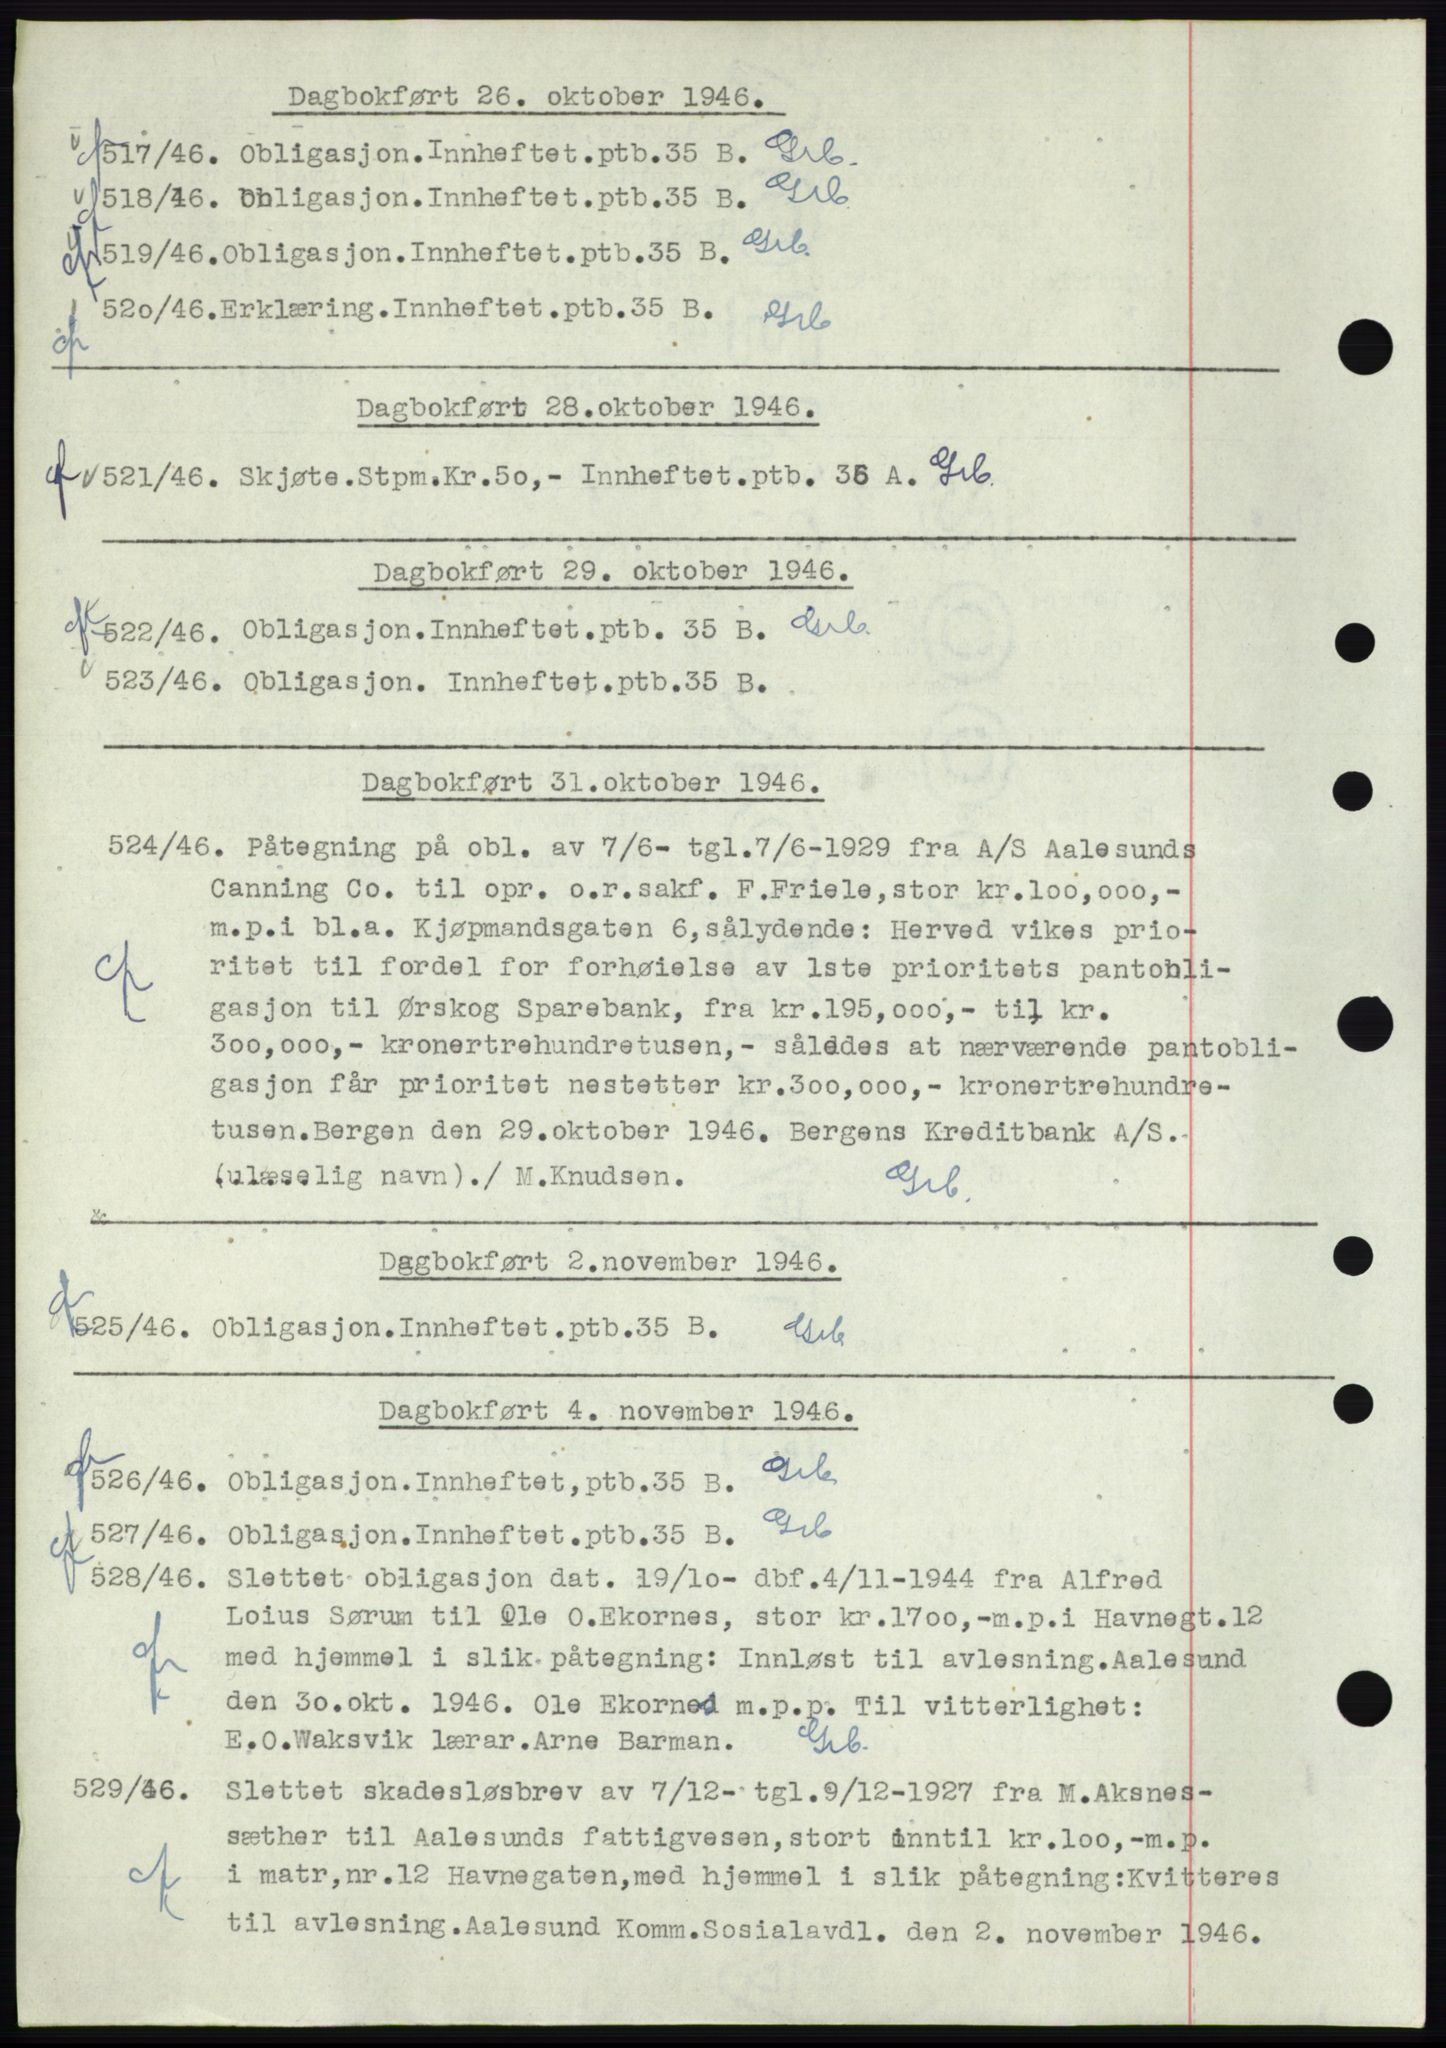 Dagbokført 26. oktober 1946.
517/46. Obligasjon.Innheftet.ptb.35 B. Grb.
518/46. Obligasjon.Innheftet.ptb.35 B. Grb
519/46.Obligasjon.Innheftet.ptb.35 B. Grb.
520/46.Erklæring.Innheftet.ptb.35 B. Grb
Dagbokført 28.oktober 1946.
521/46. Skjøte.Stpm.Kr.5o,- Innheftet.ptb. 36 A. Grb.
Dagbokført 29. oktober 1946.
522/46. Obligasjon.Innheftet.ptb. 35 B. Grb.
523/46. Obligasjon. Innheftet.ptb.35 B.
Dagbokført 31.oktober 1946.
524/46. Påtegning på obl. av 7/6- tgl.7/6-1929 fra A/S Aalesunds
Canning Co. til opr. o.r.sakf. F.Friele,stor kr.loo,ooo,-
m.p.i bl.a. Kjøpmandsgaten 6,sålydende: Herved vikes prio-
ritet til fordel for forhøielse av lste prioritets pantobli-
gasjon til Ørskog Sparebank, fra kr.195,ooo,- til kr.
3oo,ooo,- kronertrehundretusen,- således at nærværende pantobli-
gasjon får prioritet nestetter kr.3oo,ooo,- kronertrehundre-
tusen.Bergen den 29.oktober 1946. Bergens Kreditbank A/S.
(ulæselig navn)./ M.Knudsen. Grb.
Dagbokført 2.november 1946.
525/46. Obligasjon.Innheftet.ptb.35 B. Grb
Dagbokført 4. november 1946.
526/46. Obligasjon.Innheftet,ptb.35 B. Grb
527/46. Obligasjon.Innheftet.ptb.35 B. Grb
528/46. Slettet obligasjon dat. 19/lo- dbf.4/11-1944 fra Alfred
Loius Sørum til Ole O.Ekornes, stor kr.17oo,-m.p.i Havnegt.12
med hjemmel i slik påtegning: Innløst til avlesning.Aalesund
den 3o.okt. 1946. Ole Ekornes m.p.p. Til vitterlighet:
E.O.Waksvik lærar.Arne Barman. Grb.
529/46. Slettet skadesløsbrev av 7/12- tgl.9/12-1927 fra M.Aksnes-
sæther til Aalesunds fattigvesen,stort inntil kr.loo,-m.p.
i matr,nr.12 Havnegaten,med hjemmel i slik påtegning:Kvitteres
til avlesning.Aalesund Komm.Sosialavdl. den 2. november 1946.